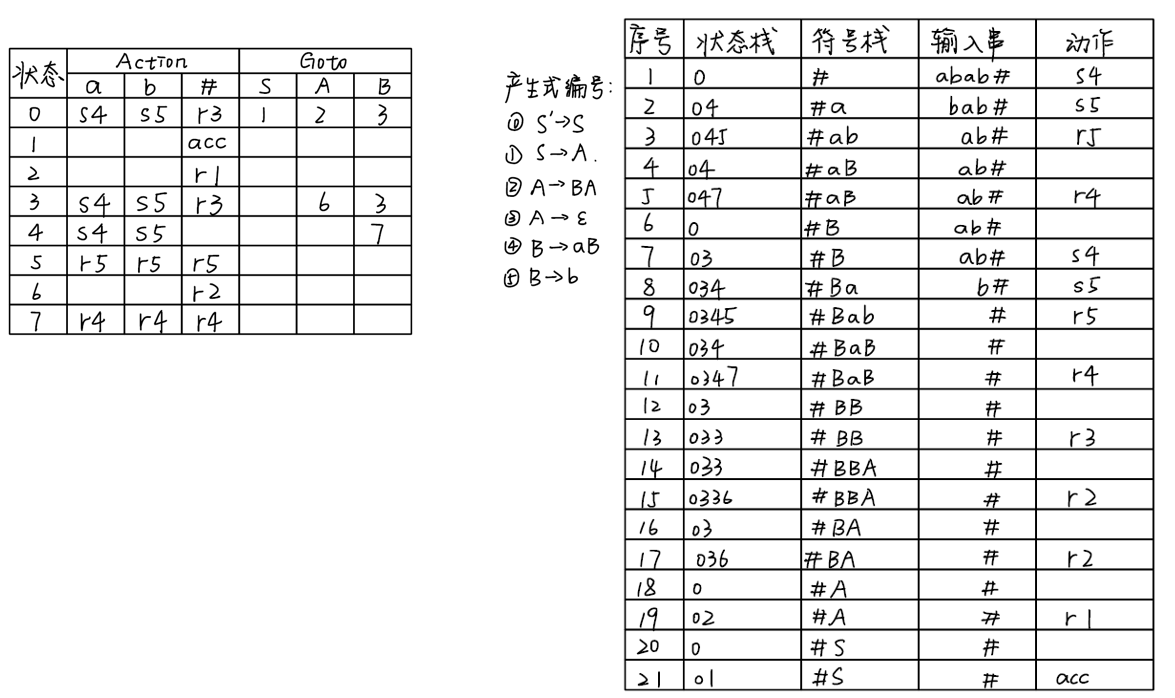 状态 Action Goto
a b # S A B
0 s4 s5 r3 1 2 3
1 acc
2 r1
3 s4 s5 r3 6 3
4 s4 s5 7
5 r5 r5 r5
6 r2
7 r4 r4 r4
产生式编号:
⓪ S'→S
① S→A.
② A→BA
③ A→ε
④ B→aB
⑤ B→b
序号 状态栈 符号栈 输入串 动作
1 0 # abab# s4
2 04 #a bab# s5
3 045 #ab ab# r5
4 04 #aB ab#
5 047 #aB ab# r4
6 0 #B ab#
7 03 #B ab# s4
8 034 #Ba b# s5
9 0345 #Bab # r5
10 034 #BaB #
11 0347 #BaB # r4
12 03 #BB #
13 033 #BB # r3
14 033 #BBA #
15 0336 #BBA # r2
16 03 #BA #
17 036 #BA # r2
18 0 #A #
19 02 #A # r1
20 0 #S #
21 01 #S # acc